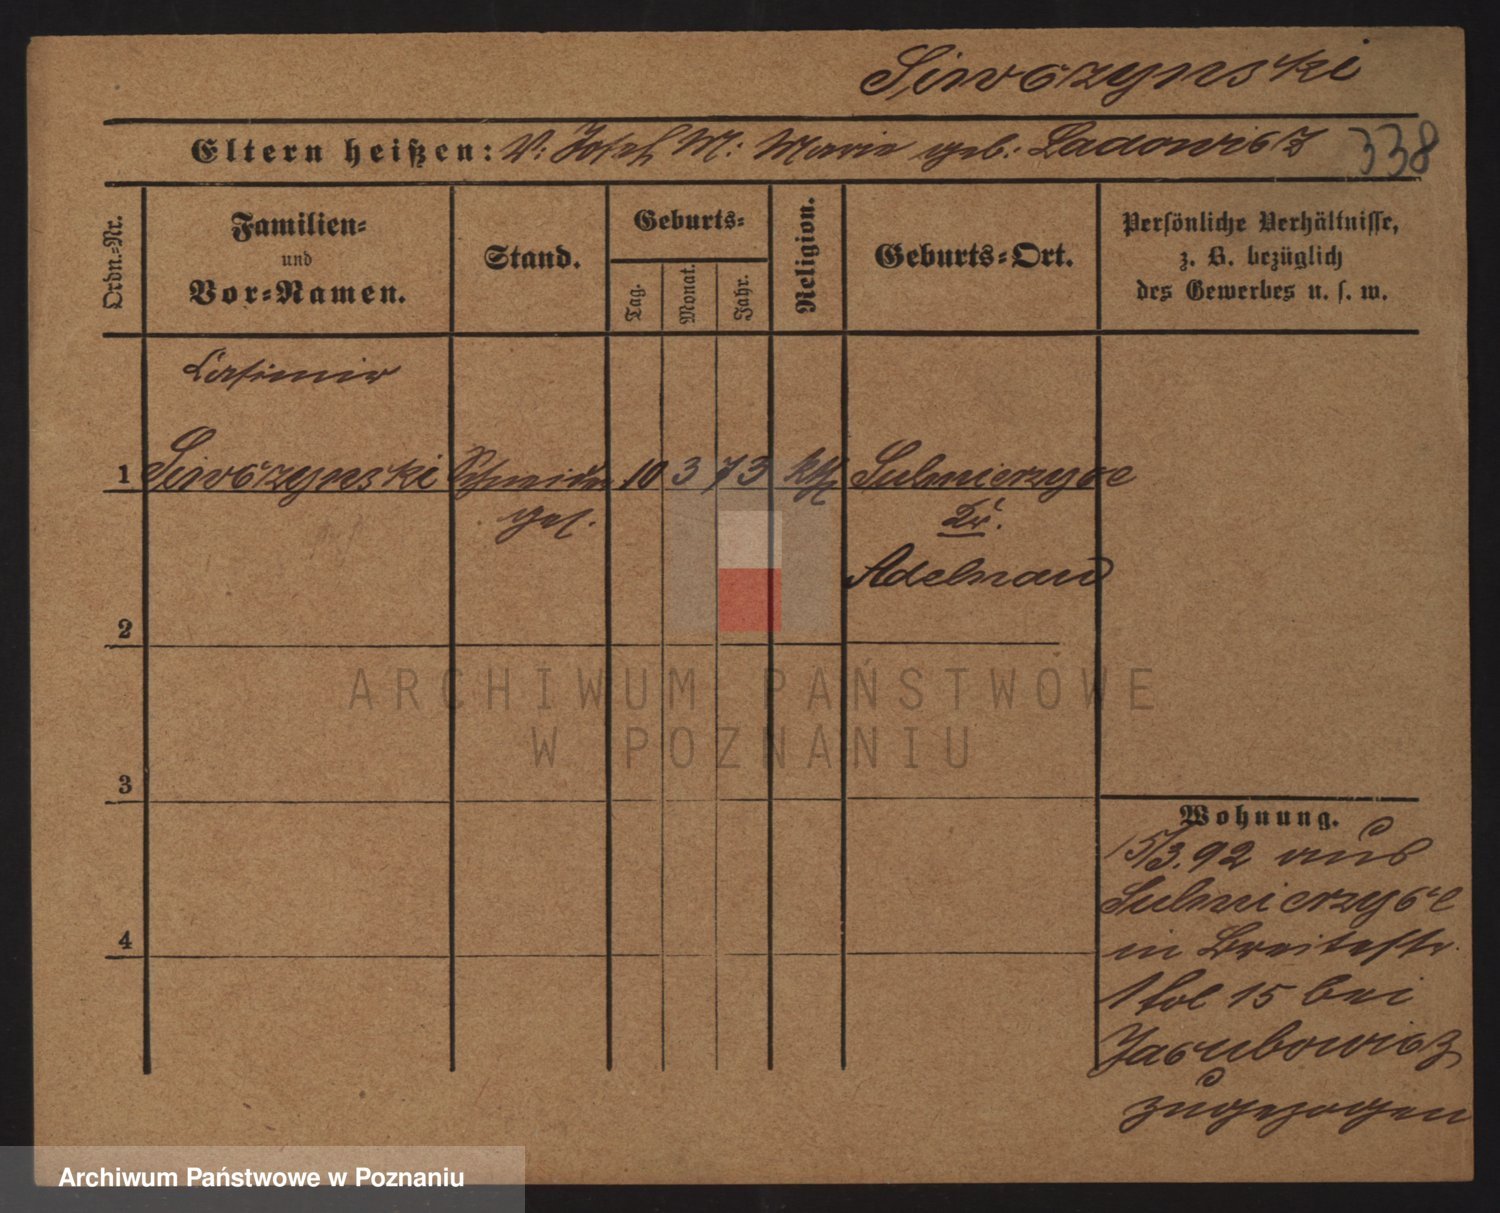 Siwczynski
Eltern heißen: V: Josef M: Marie geb. Ladowicz 338
Ordn.-Nr.
Familien-
und
Vor-Namen.
Stand.
Geburts-
Tag.
Monat.
Jahr.
Religion.
Geburts-Ort.
Persönliche Verhältnisse,
z. B. bezüglich
des Gewerbes u. s. w.
Casimir
1 Siwczynski Schneider 10 3 73 kth Sulmierzyce
ges. Kr.
Adelnau
2
3
4
Wohnung.
15/3.92 aus
Sulmierzyce
in Breitestr.
15 bei
Jacubowicz
zugezogen
ARCHIWUM PAŃSTWOWE
W POZNANIU
Archiwum Państwowe w Poznaniu